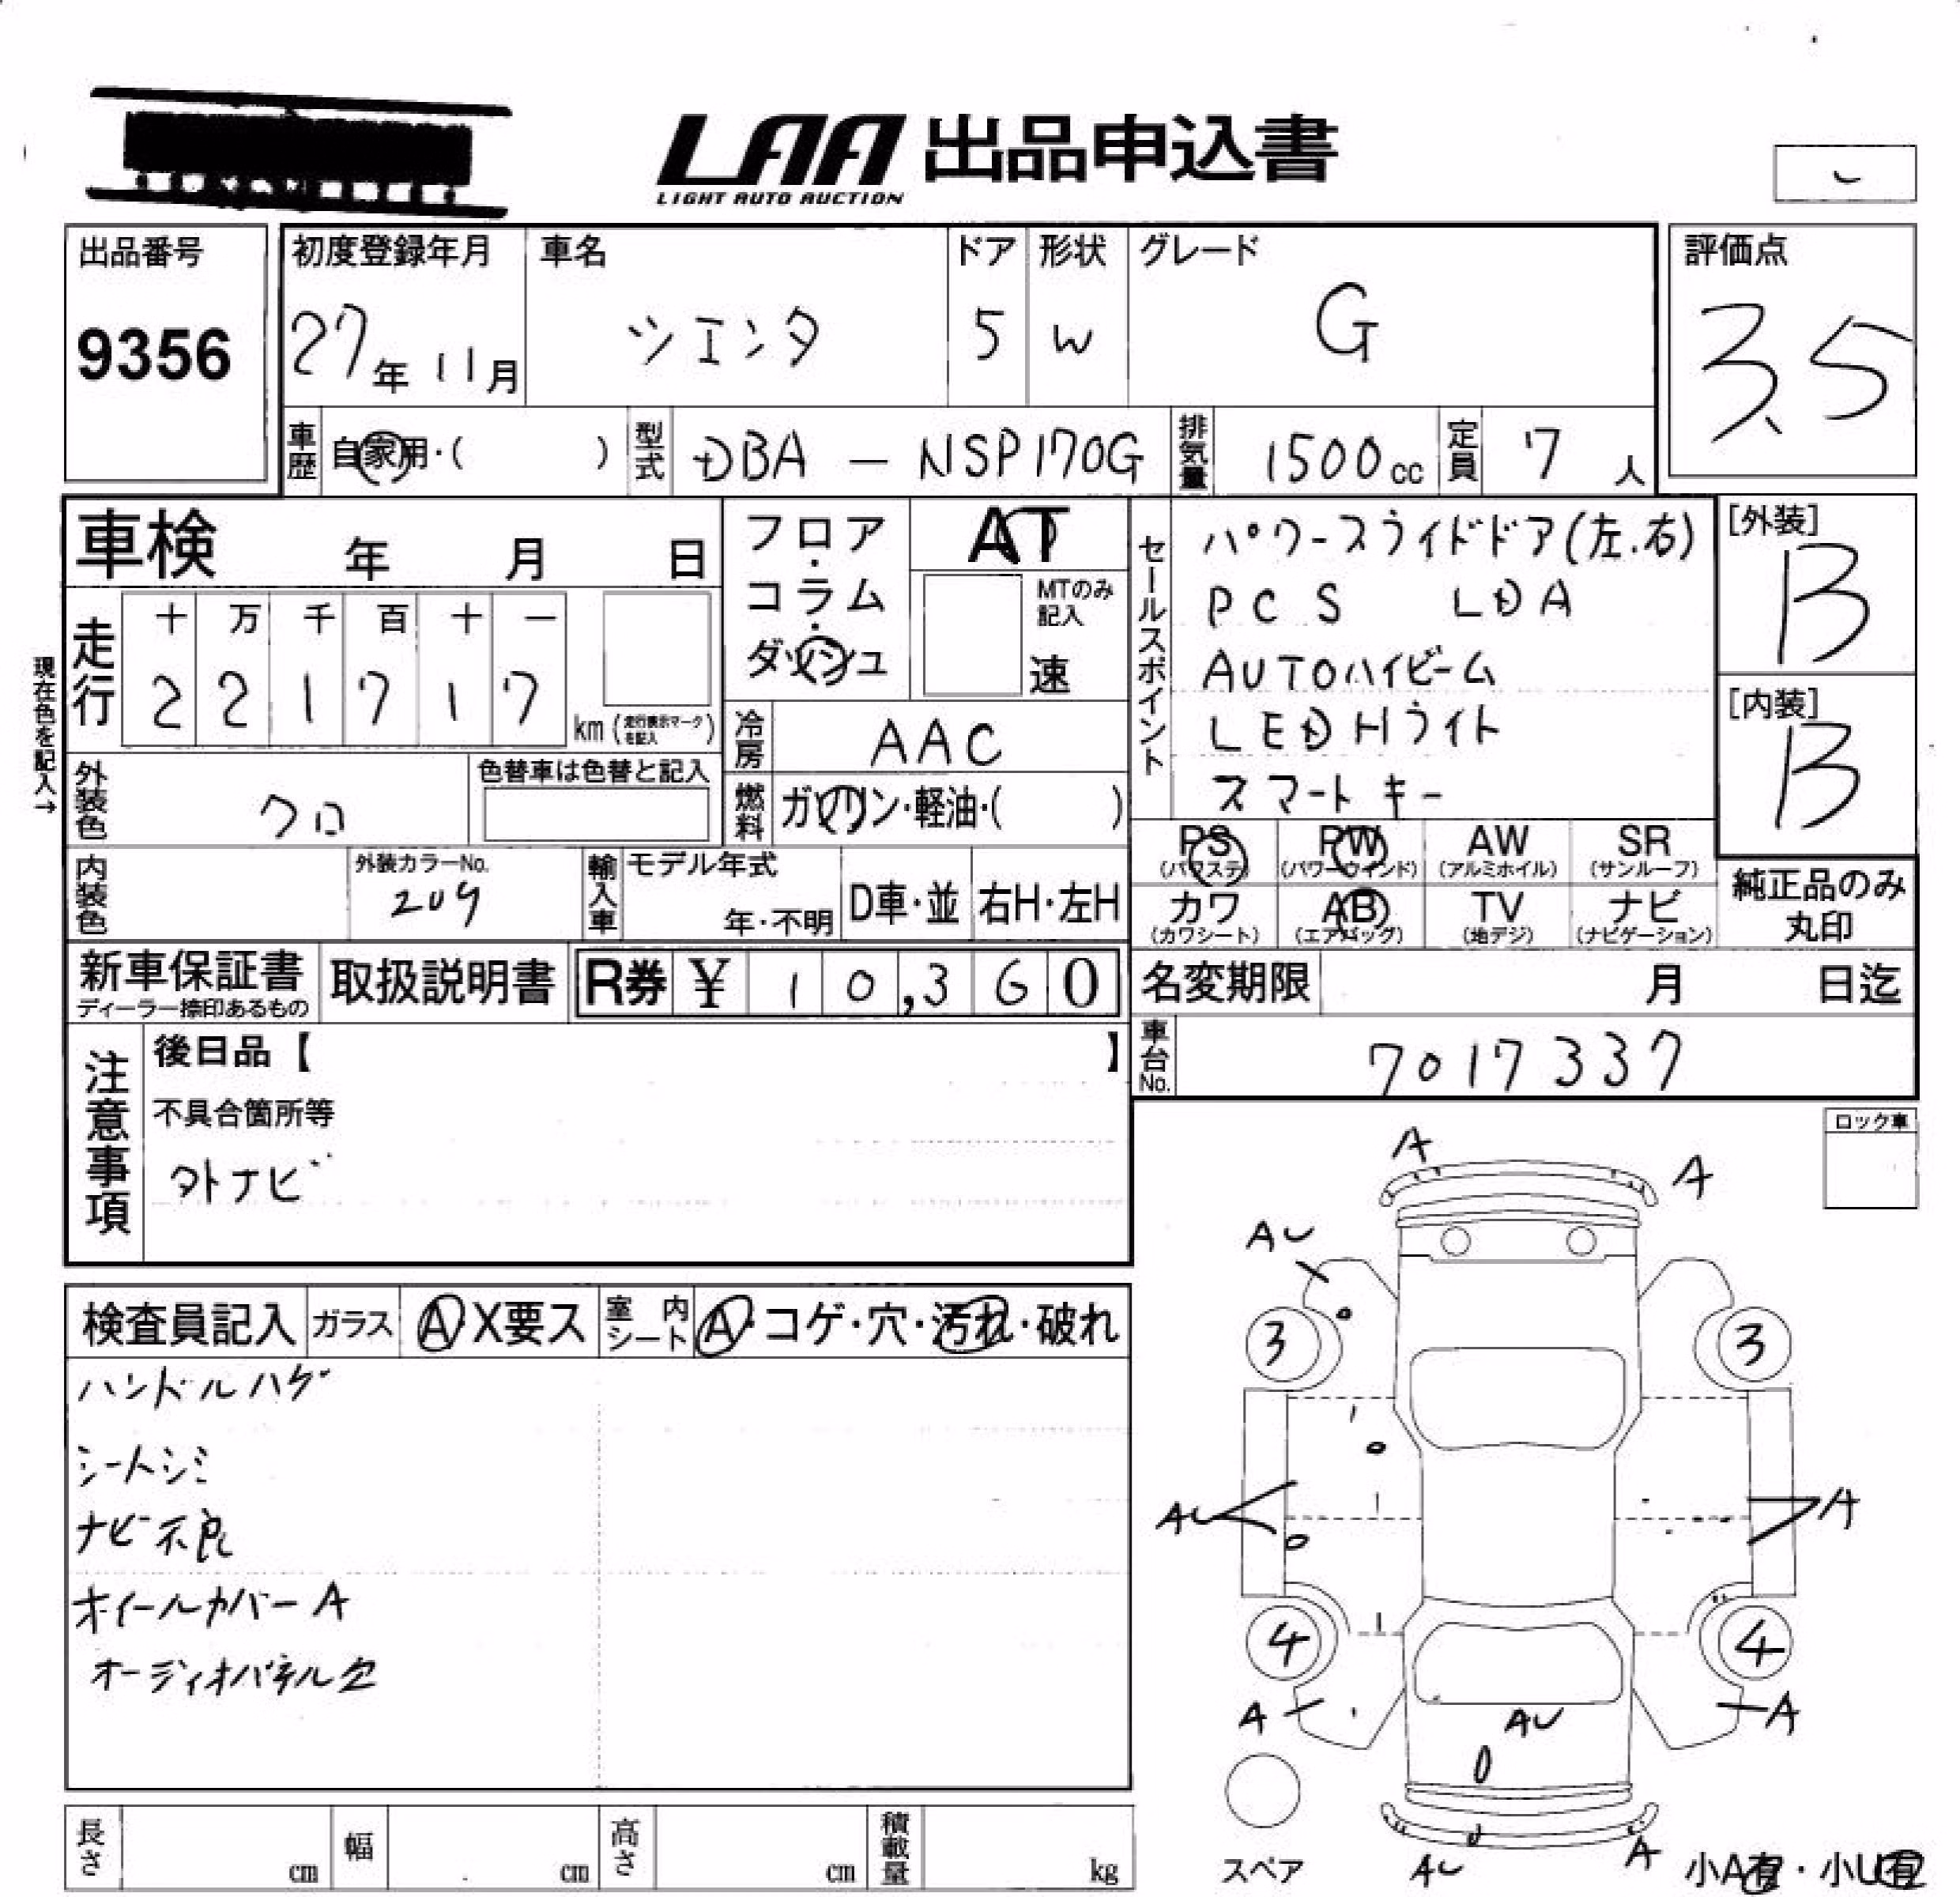 LAA 出品申込書
LIGHT AUTO AUCTION
出品番号
9356
初度登録年月
27年 11月
車名
シエンタ
ドア
5
形状
W
グレード
G
評価点
3.5
車歴
自家用・( )
型式
DBA - NSP170G
排気量
1500cc
定員
7人
車検 年 月 日
フロア・コラム・ダッシュ
AT
MTのみ記入
速
現在色を記入→
走行
十 万 千 百 十 一
2 2 1 7 1 7
km (走行表示マークを記入)
冷房
AAC
外装色
クロ
色替車は色替と記入
燃料
ガソリン・軽油・( )
セールスポイント
パワースライドドア(左.右)
PCS LDA
AUTOハイビーム
LED Hライト
スマートキー
[外装]
B
[内装]
B
PS
(パワステ)
PW
(パワーウィンド)
AW
(アルミホイル)
SR
(サンルーフ)
カワ
(カワシート)
AB
(エアバッグ)
TV
(地デジ)
ナビ
(ナビゲーション)
純正品のみ
丸印
内装色
外装カラーNo.
209
輸入車
モデル年式
年・不明
D車・並
右H・左H
新車保証書
ディーラー捺印あるもの
取扱説明書
R券 ¥ 10,360
名変期限 月 日迄
車台No.
7017337
注意事項
後日品【 】
不具合箇所等
外ナビ
ロック車
検査員記入
ガラス
A X要ス
室内シート
A・コゲ・穴・汚れ・破れ
ハンドルハゲ
シートシミ
ナビ不良
ホイールカバーA
オーディオパネル欠
A
A
AU
3
3
AU
A
4
4
A
AU
A
AU
A
スペア
小A有・小U有
長さ cm
幅 cm
高さ cm
積載量 kg